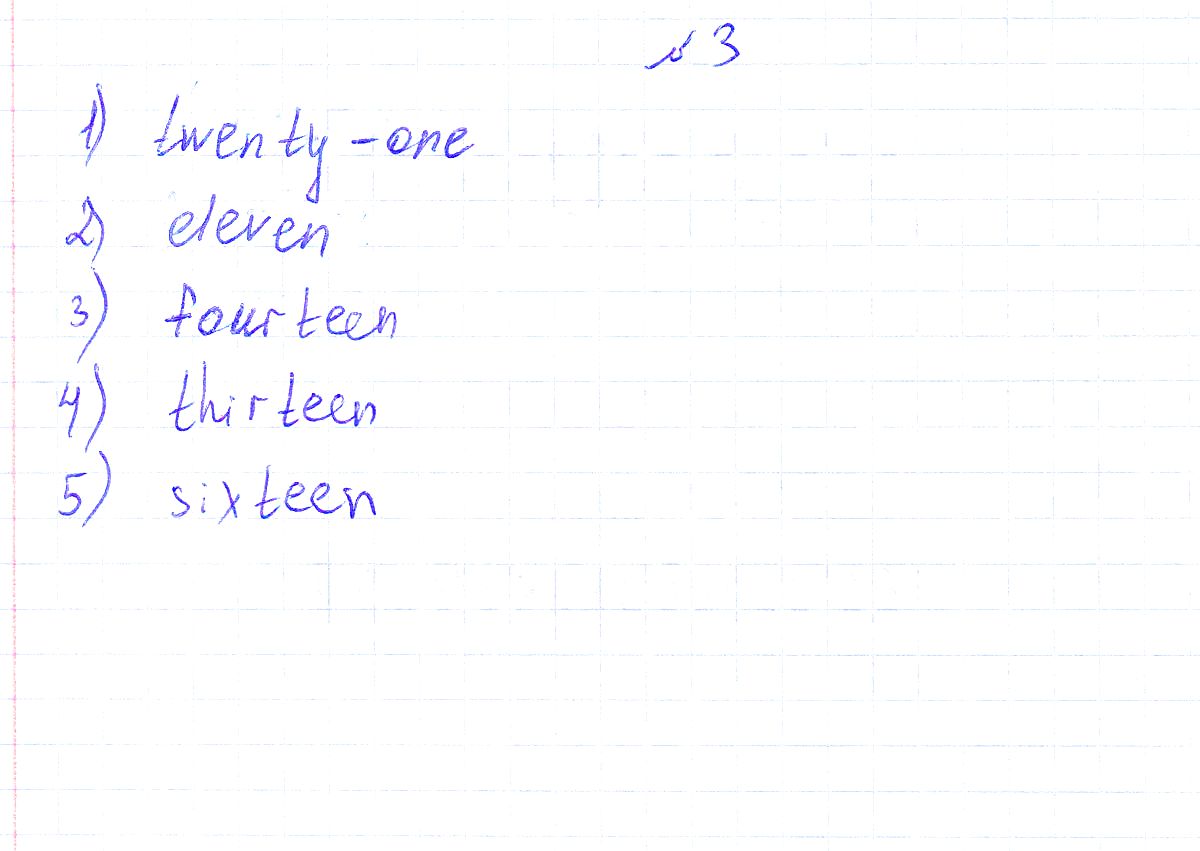 № 3
1) twenty-one
2) eleven
3) fourteen
4) thirteen
5) sixteen